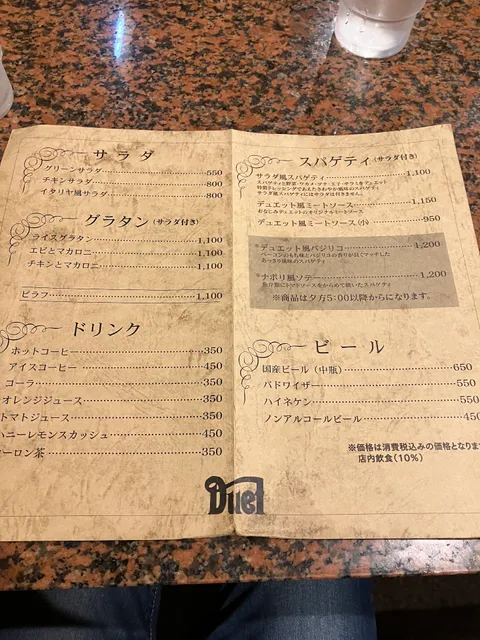 サラダ
グリーンサラダ 550
チキンサラダ 800
イタリヤ風サラダ 800
グラタン (サラダ付き)
ライスグラタン 1,100
エビとマカロニ 1,100
チキンとマカロニ 1,100
ピラフ 1,100
ドリンク
ホットコーヒー 350
アイスコーヒー 450
コーラ 350
オレンジジュース 350
トマトジュース 350
ハニーレモンスカッシュ 450
ーロン茶 350
スパゲティ (サラダ付き)
サラダ風スパゲティ 1,100
サラダ風スパゲティにはサラダは付きません。
デュエット風ミートソース 1,150
おなじみデュエットのオリジナルミートソース
デュエット風ミートソース (小) 950
デュエット風バジリコ 1,200
ベーコンのもち味とバジリコの香りが良くマッチした
あっさり風味のスパゲティ
ナポリ風ソテー 1,200
※商品は夕方5:00以降からになります。
ビール
国産ビール (中瓶) 650
バドワイザー 550
ハイネケン 550
ノンアルコールビール 450
※価格は消費税込みの価格となりま
店内飲食 (10%)
Duet